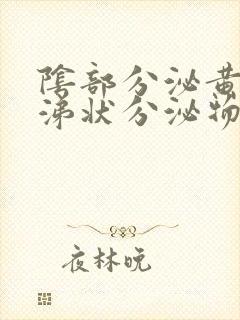 陰部分泌黃
涕狀分泌物
夜林晚